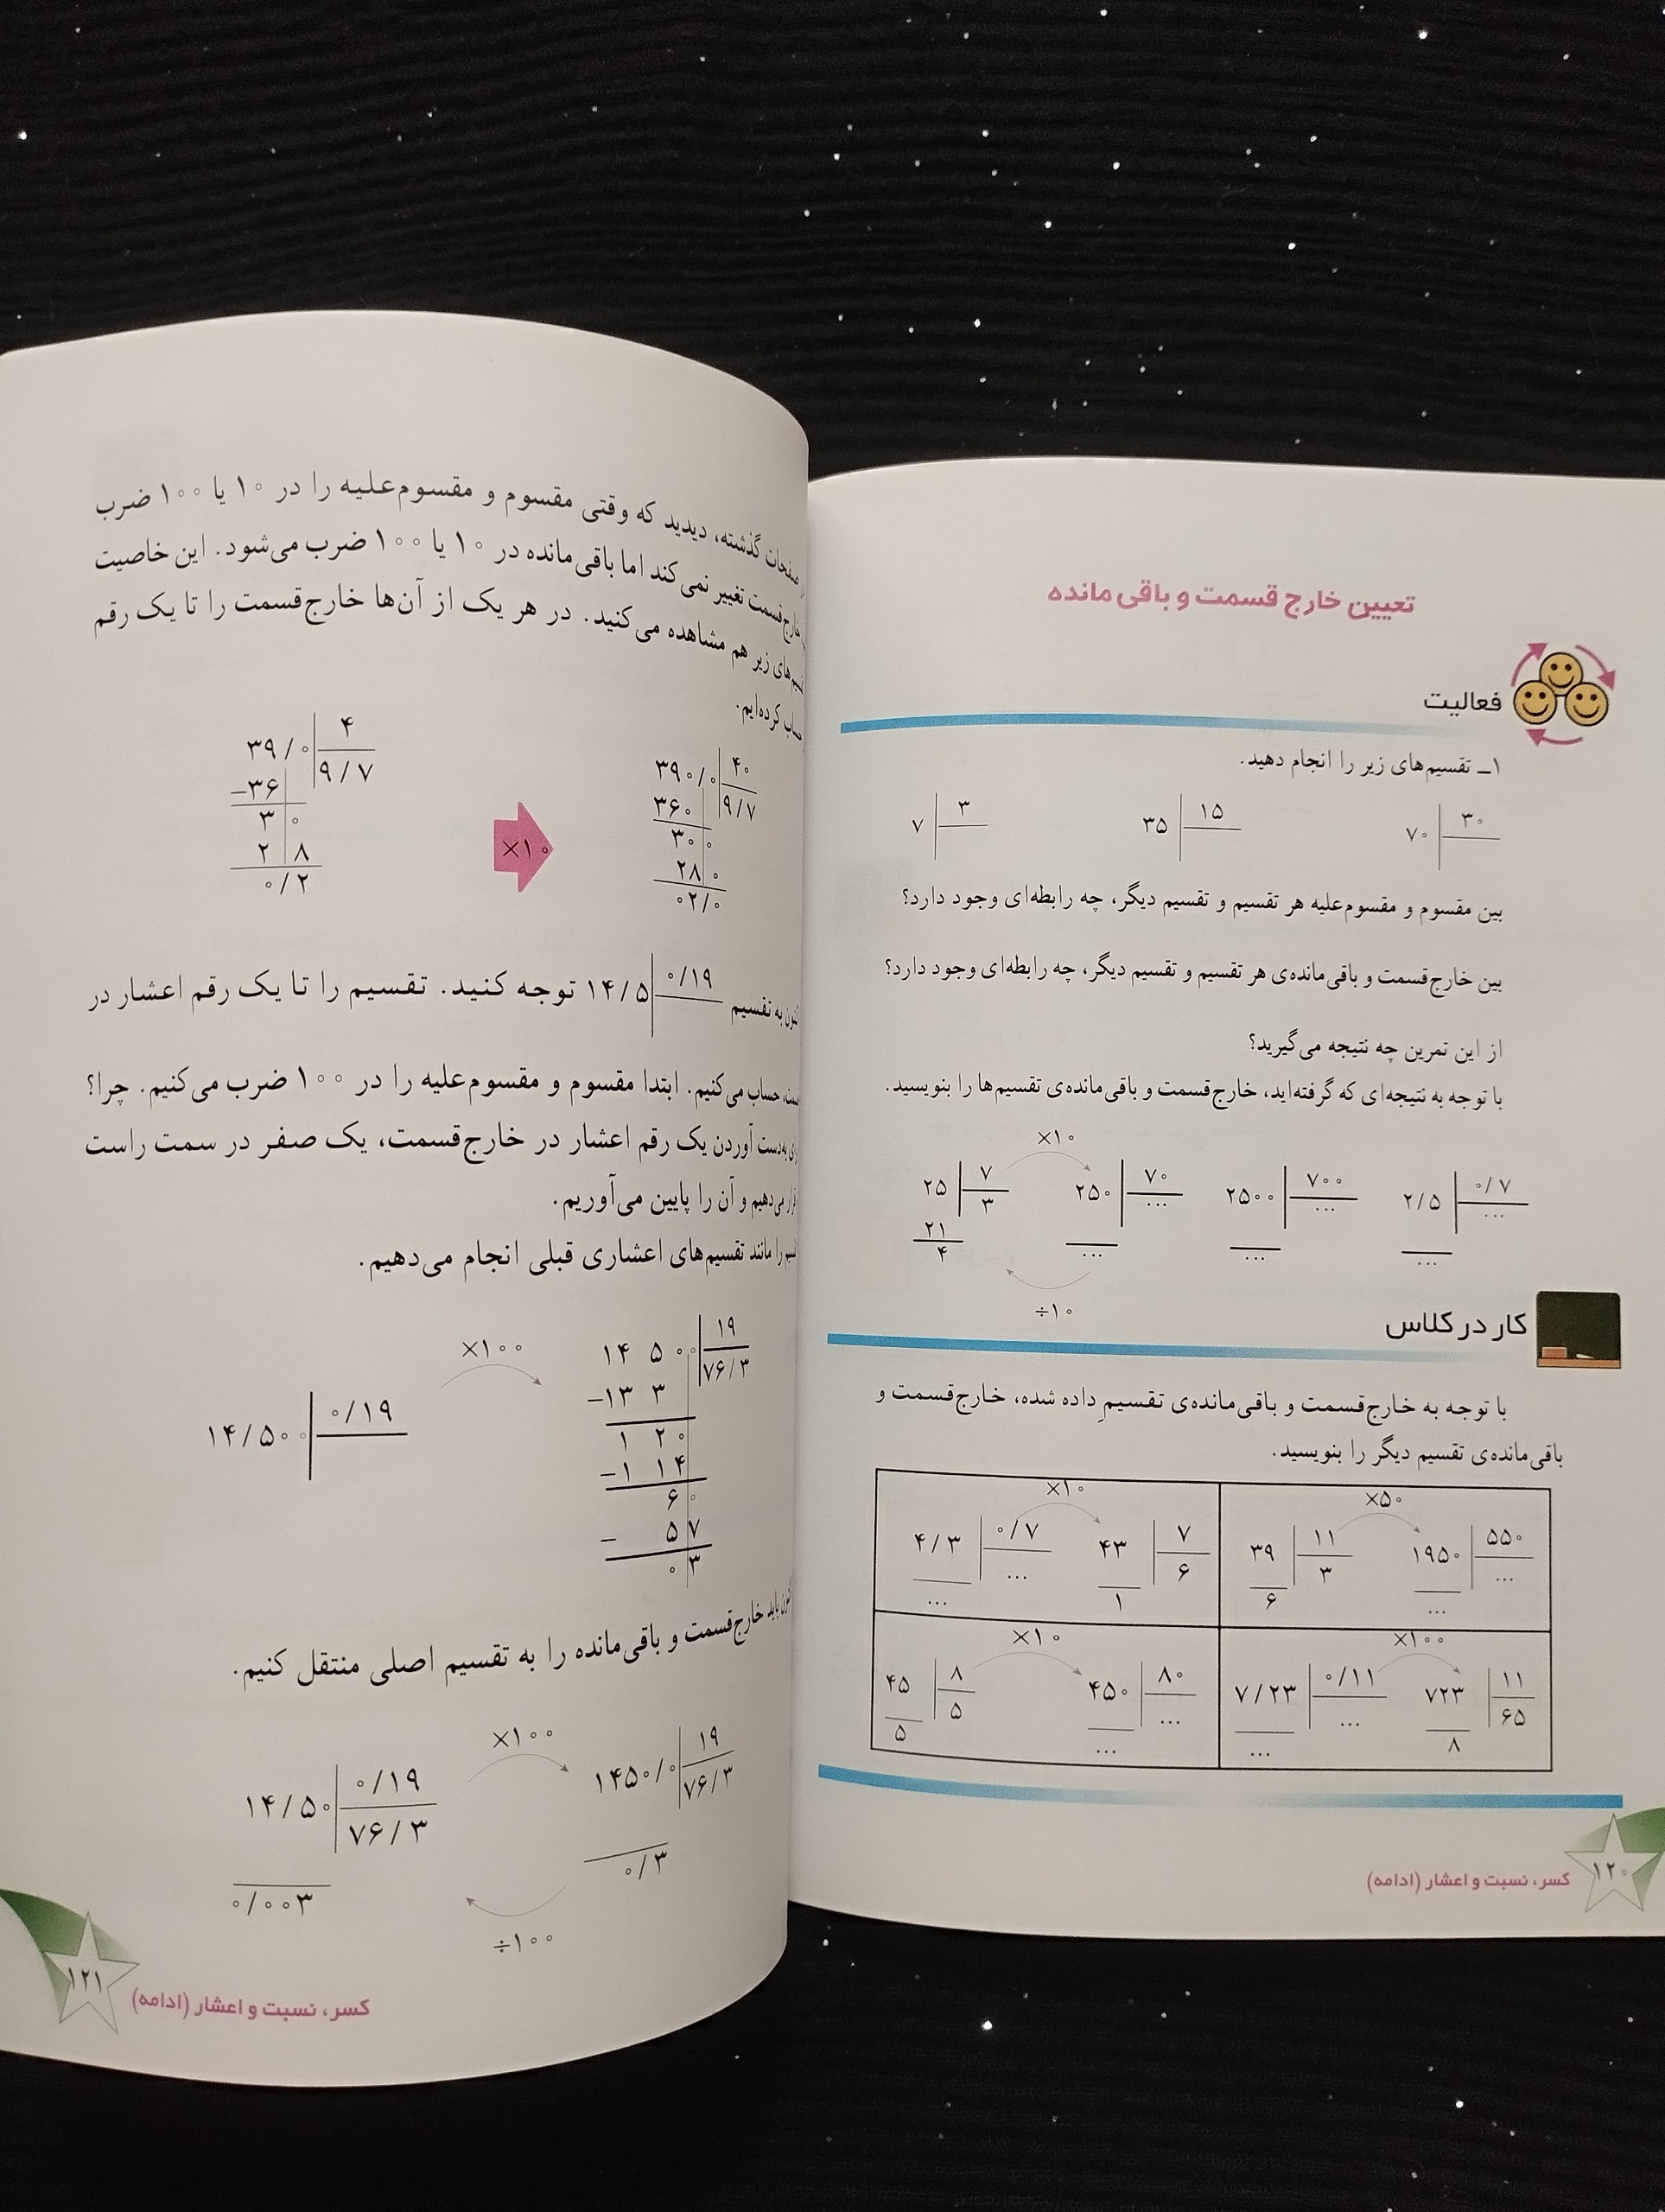 تعیین خارج قسمت و باقی مانده
فعالیت
۱ــ تقسیم‌های زیر را انجام دهید.
۷ ۳ ۳۵ ۱۵ ۷۰ ۳۰
بین مقسوم و مقسوم‌علیه هر تقسیم و تقسیم دیگر، چه رابطه‌ای وجود دارد؟
بین خارج‌قسمت و باقی‌مانده‌ی هر تقسیم و تقسیم دیگر، چه رابطه‌ای وجود دارد؟
از این تمرین چه نتیجه می‌گیرید؟
با توجه به نتیجه‌ای که گرفته‌اید، خارج‌قسمت و باقی‌مانده‌ی تقسیم‌ها را بنویسید.
×۱۰
۷ ۷۰ ۷۰۰ ۰/۷
۲۵ ۲۵۰ ۲۵۰۰ ۲/۵
۳ ... ... ...
۲۱
۴ ... ... ...
÷۱۰
کار در کلاس
با توجه به خارج‌قسمت و باقی‌مانده‌ی تقسیمِ داده شده، خارج‌قسمت و
باقی‌مانده‌ی تقسیم دیگر را بنویسید.
×۱۰ ×۵۰
۴/۳ ۰/۷ ۴۳ ۷ ۳۹ ۱۱ ۱۹۵۰ ۵۵۰
... ۶ ۳ ...
... ۱ ۶ ...
×۱۰ ×۱۰۰
۴۵ ۸ ۴۵۰ ۸۰ ۷/۲۳ ۰/۱۱ ۷۲۳ ۱۱
۵ ... ... ۶۵
۵ ... ... ۸
کسر، نسبت و اعشار (ادامه)
۱۲۰
صفحات گذشته، دیدید که وقتی مقسوم و مقسوم‌علیه را در ۱۰ یا ۱۰۰ ضرب
خارج‌قسمت تغییر نمی‌کند اما باقی‌مانده در ۱۰ یا ۱۰۰ ضرب می‌شود. این خاصیت
زیر هم مشاهده می‌کنید. در هر یک از آن‌ها خارج‌قسمت را تا یک رقم
کرده‌ایم.
۳۹/۰ ۴
۹/۷
−۳۶
۳ ۰
۲ ۸
۰/۲
×۱۰
۳۹۰/۰ ۴۰
۹/۷
۳۶۰
۳۰ ۰
۲۸ ۰
۰۲/۰
به تقسیم ۱۴/۵ ۰/۱۹ توجه کنید. تقسیم را تا یک رقم اعشار در
حساب می‌کنیم. ابتدا مقسوم و مقسوم‌علیه را در ۱۰۰ ضرب می‌کنیم. چرا؟
به‌دست آوردن یک رقم اعشار در خارج‌قسمت، یک صفر در سمت راست
می‌دهیم و آن را پایین می‌آوریم.
را مانند تقسیم‌های اعشاری قبلی انجام می‌دهیم.
۱۴/۵۰۰ ۰/۱۹
×۱۰۰
۱۴ ۵۰۰ ۱۹
۷۶/۳
−۱۳ ۳
۱ ۲۰
−۱ ۱۴
۶۰
− ۵۷
۰۳
باید خارج‌قسمت و باقی‌مانده را به تقسیم اصلی منتقل کنیم.
×۱۰۰
۱۴/۵۰ ۰/۱۹ ۱۴۵۰/۰ ۱۹
۷۶/۳ ۷۶/۳
۰/۰۰۳ ۰/۳
÷۱۰۰
۱۲۱
کسر، نسبت و اعشار (ادامه)